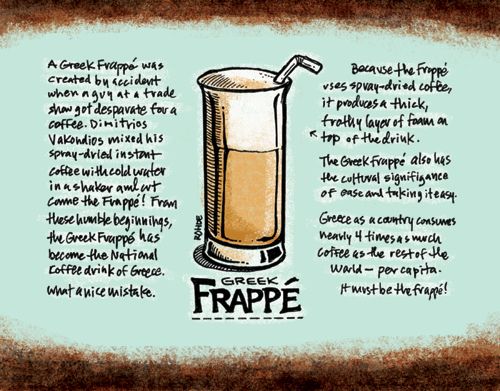 A Greek Frappé was
created by accident
when a guy at a trade
show got desparate for a
coffee. Dimitrios
Vakondios mixed his
spray-dried instant
coffee with cold water
in a shaker and out
come the Frappé! From
these humble beginnings,
the Greek Frappé has
become the National
Coffee drink of Greece.
What a nice mistake.
RÖHDE
GREEK
FRAPPÉ
Because the Frappé
uses spray-dried coffee,
it produces a thick,
frothy layer of foam on
top of the drink.
The Greek Frappé also has
the cultural signifigance
of ease and taking it easy.
Greece as a country consumes
nearly 4 times as much
coffee as the rest of the
World — per capita.
It must be the frappé!